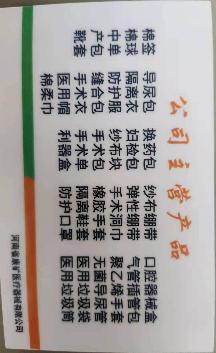 公司主营产品
棉签 导尿包 换药包 纱布绷带 口腔器械盒
棉球 隔离衣 妇检包 弹性绷带 气管插管包
中单 防护服 纱布块 手术洞巾 聚乙烯手套
产包 缝合包 手术包 橡胶手套 无菌导尿管
靴套 手术衣 手术单 隔离鞋套 医用垃圾袋
棉柔巾 医用帽 利器盒 防护口罩 医用垃圾筒